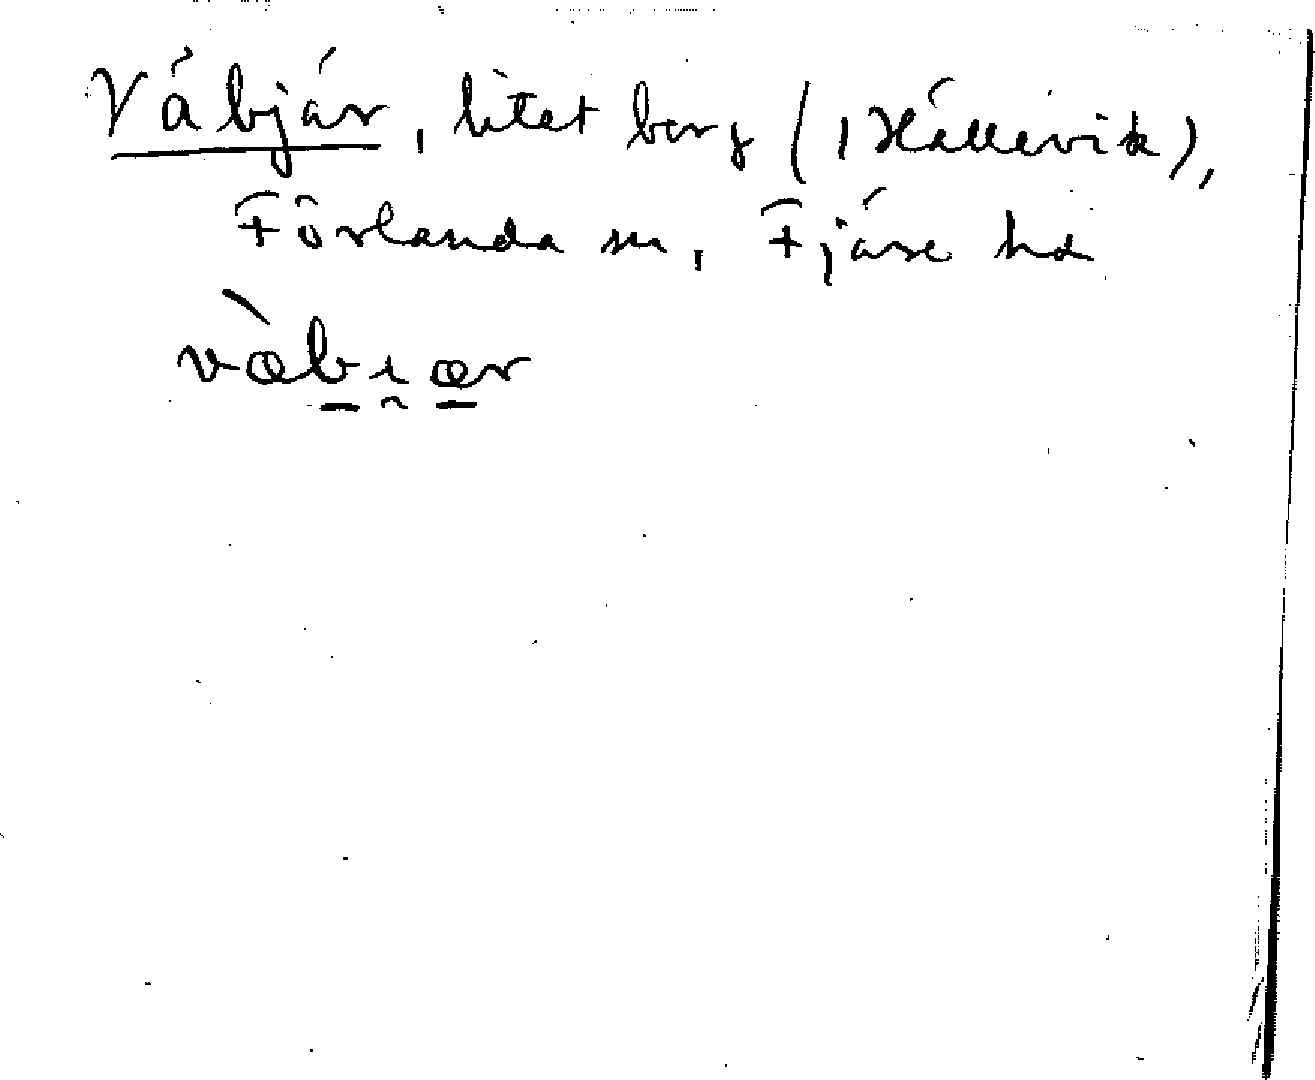 Våbjär, litet berg (i Hällevik),
Förlanda sn, Fjäre hd
vàbiær